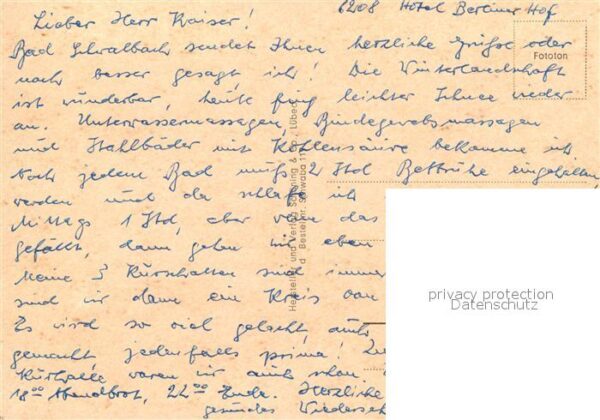 6208 Hotel Berliner Hof
Lieber Herr Kaiser!
Bad Schwalbach sendet Ihnen herzliche Grüße oder
Fototon
noch besser gesagt ich! Die Winterlandschaft
ist wunderbar, heute fing leichter Schnee wieder
an. Unterwassermassagen, Bindegewebsmassagen
und Stahlbäder mit Kohlensäure bekomme ich
Nach jedem Bad muß 2 Std Bettruhe eingehalten
werden und da schlafe ich
Mittags 1 Std, aber wenn das
gefällt, dann gehen wir eben
Meine 3 Kurschatten sind immer
sind wir dann ein Kreis von
Es wird so viel gelacht, auch
gemacht jedenfalls prima! Zu
Kurhalle waren wir auch schon
18⁰⁰ Abendbrot, 22⁰⁰ Ende. Herzliche
gesundes Wiederseh
Hersteller und Verlag Schöning & Co., Lübeck
Bestellnr. Schwaba
privacy protection
Datenschutz